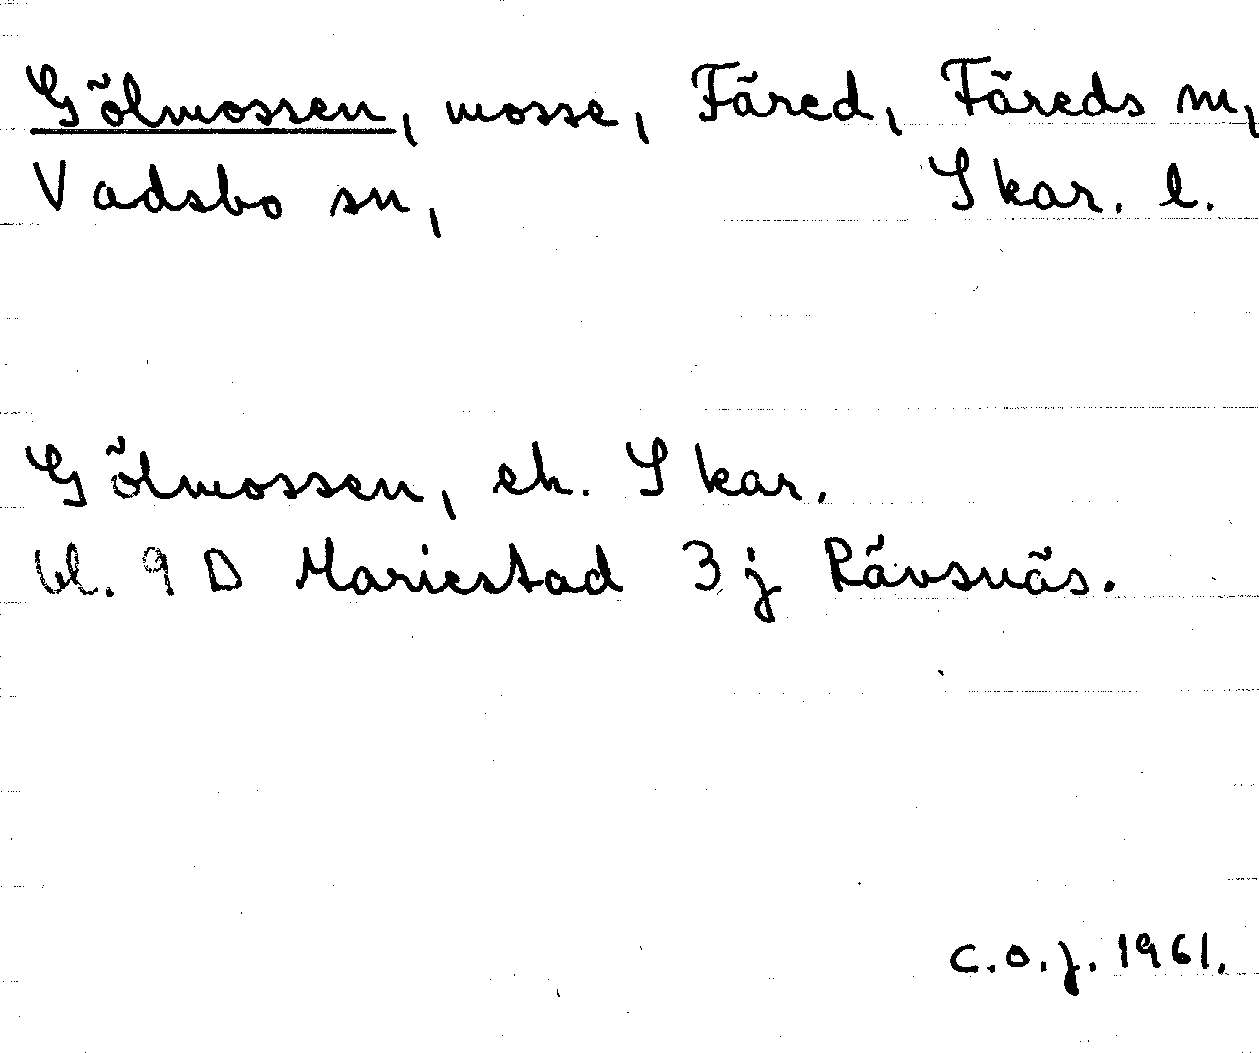 Gölmossen, mosse, Färed, Färeds sn,
Vadsbo sn, Skar. l.
Gölmossen, ek. Skar.
bl. 9 D Mariestad 3 j Rävsnäs.
C.O.J. 1961.